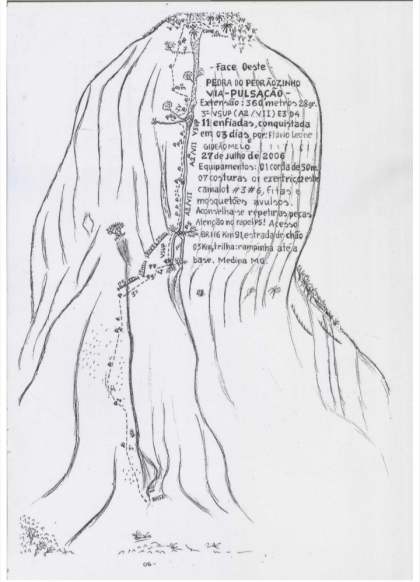 - Face Oeste
PEDRA DO PEDRÃOZINHO
VIA-PULSAÇÃO-
Extensão: 360 metros
3º VSUP (A2/VII) E3 D4
11 enfiadas, conquistada
em 03 dias por: Flavio Leone
GIDEÃO MELO e
27 de julho de 2006
Equipamentos: 01 corda de 50m
07 costuras
camalot #3 #6, fitas e
mosquetões avulsos.
Aconselha-se repetir as peças
Atenção no rapel PS! Acesso
BR 116 Km 91, estrada de chão
03 Km, trilha: rampinha até a
base. Medina MG
A2/VII
VSUP
A2/VII
VSUP
BASE
06-